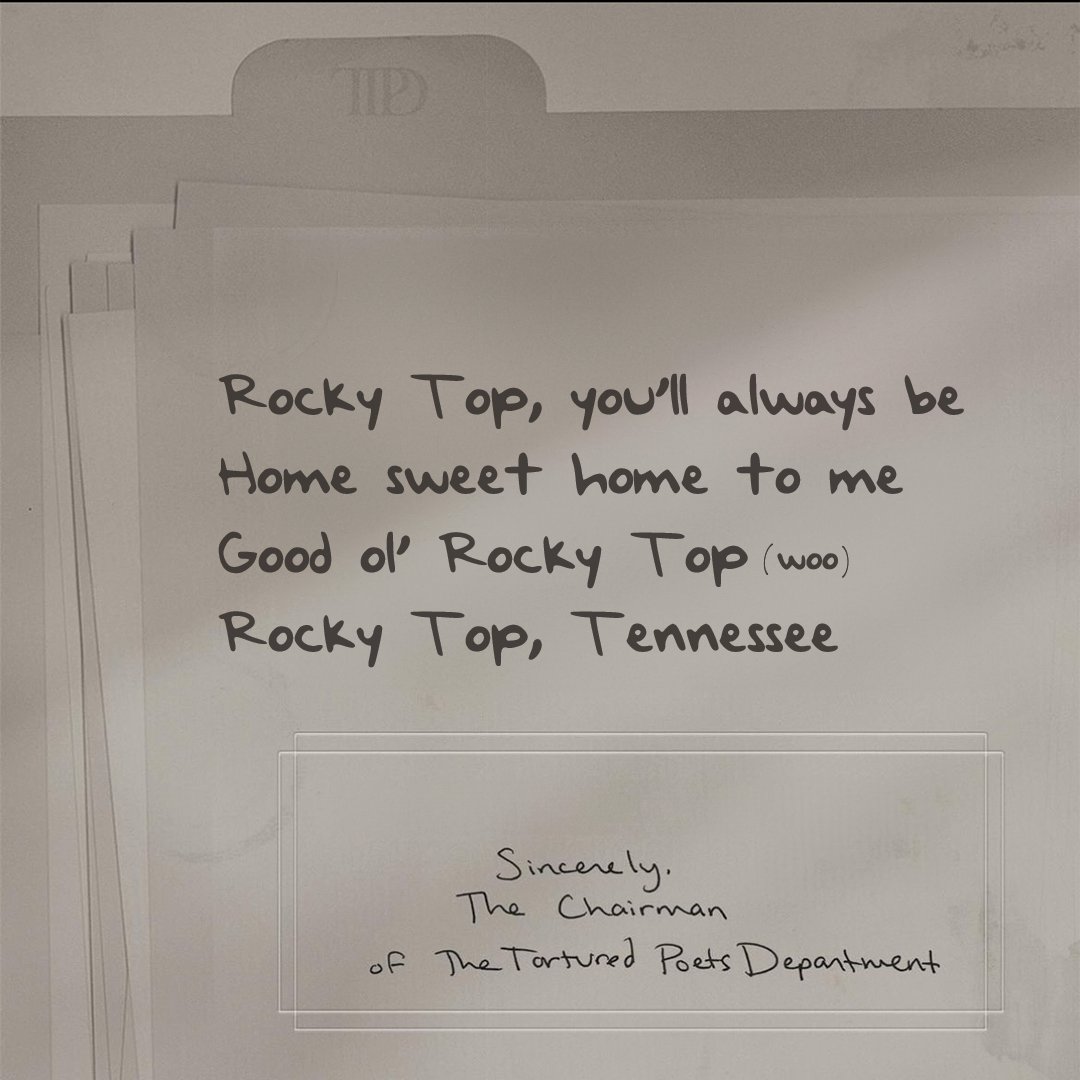 TTPD
Rocky Top, you'll always be
Home sweet home to me
Good ol' Rocky Top (woo)
Rocky Top, Tennessee
Sincerely,
The Chairman
of The Tortured Poets Department